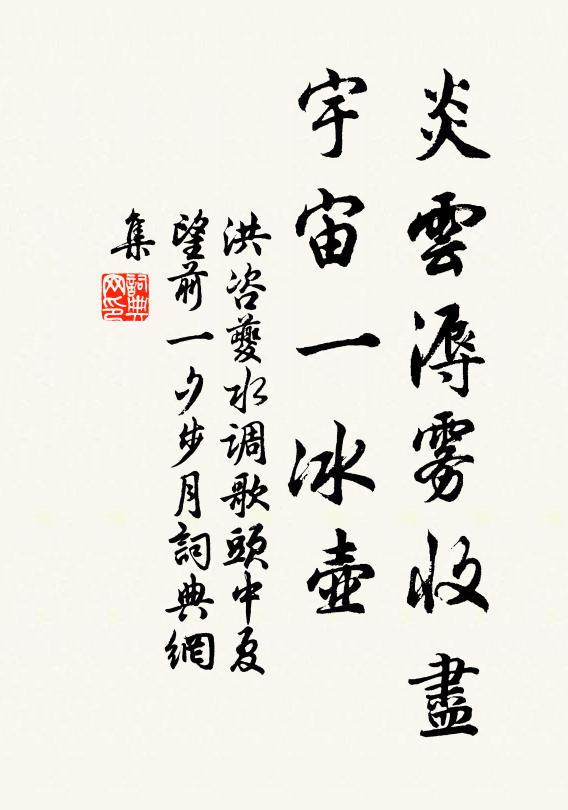 炎雲溽霧收盡
宇宙一冰壺
洪咨夔水调歌頭中夏
望前一夕步月詞典網
集
詞典網印